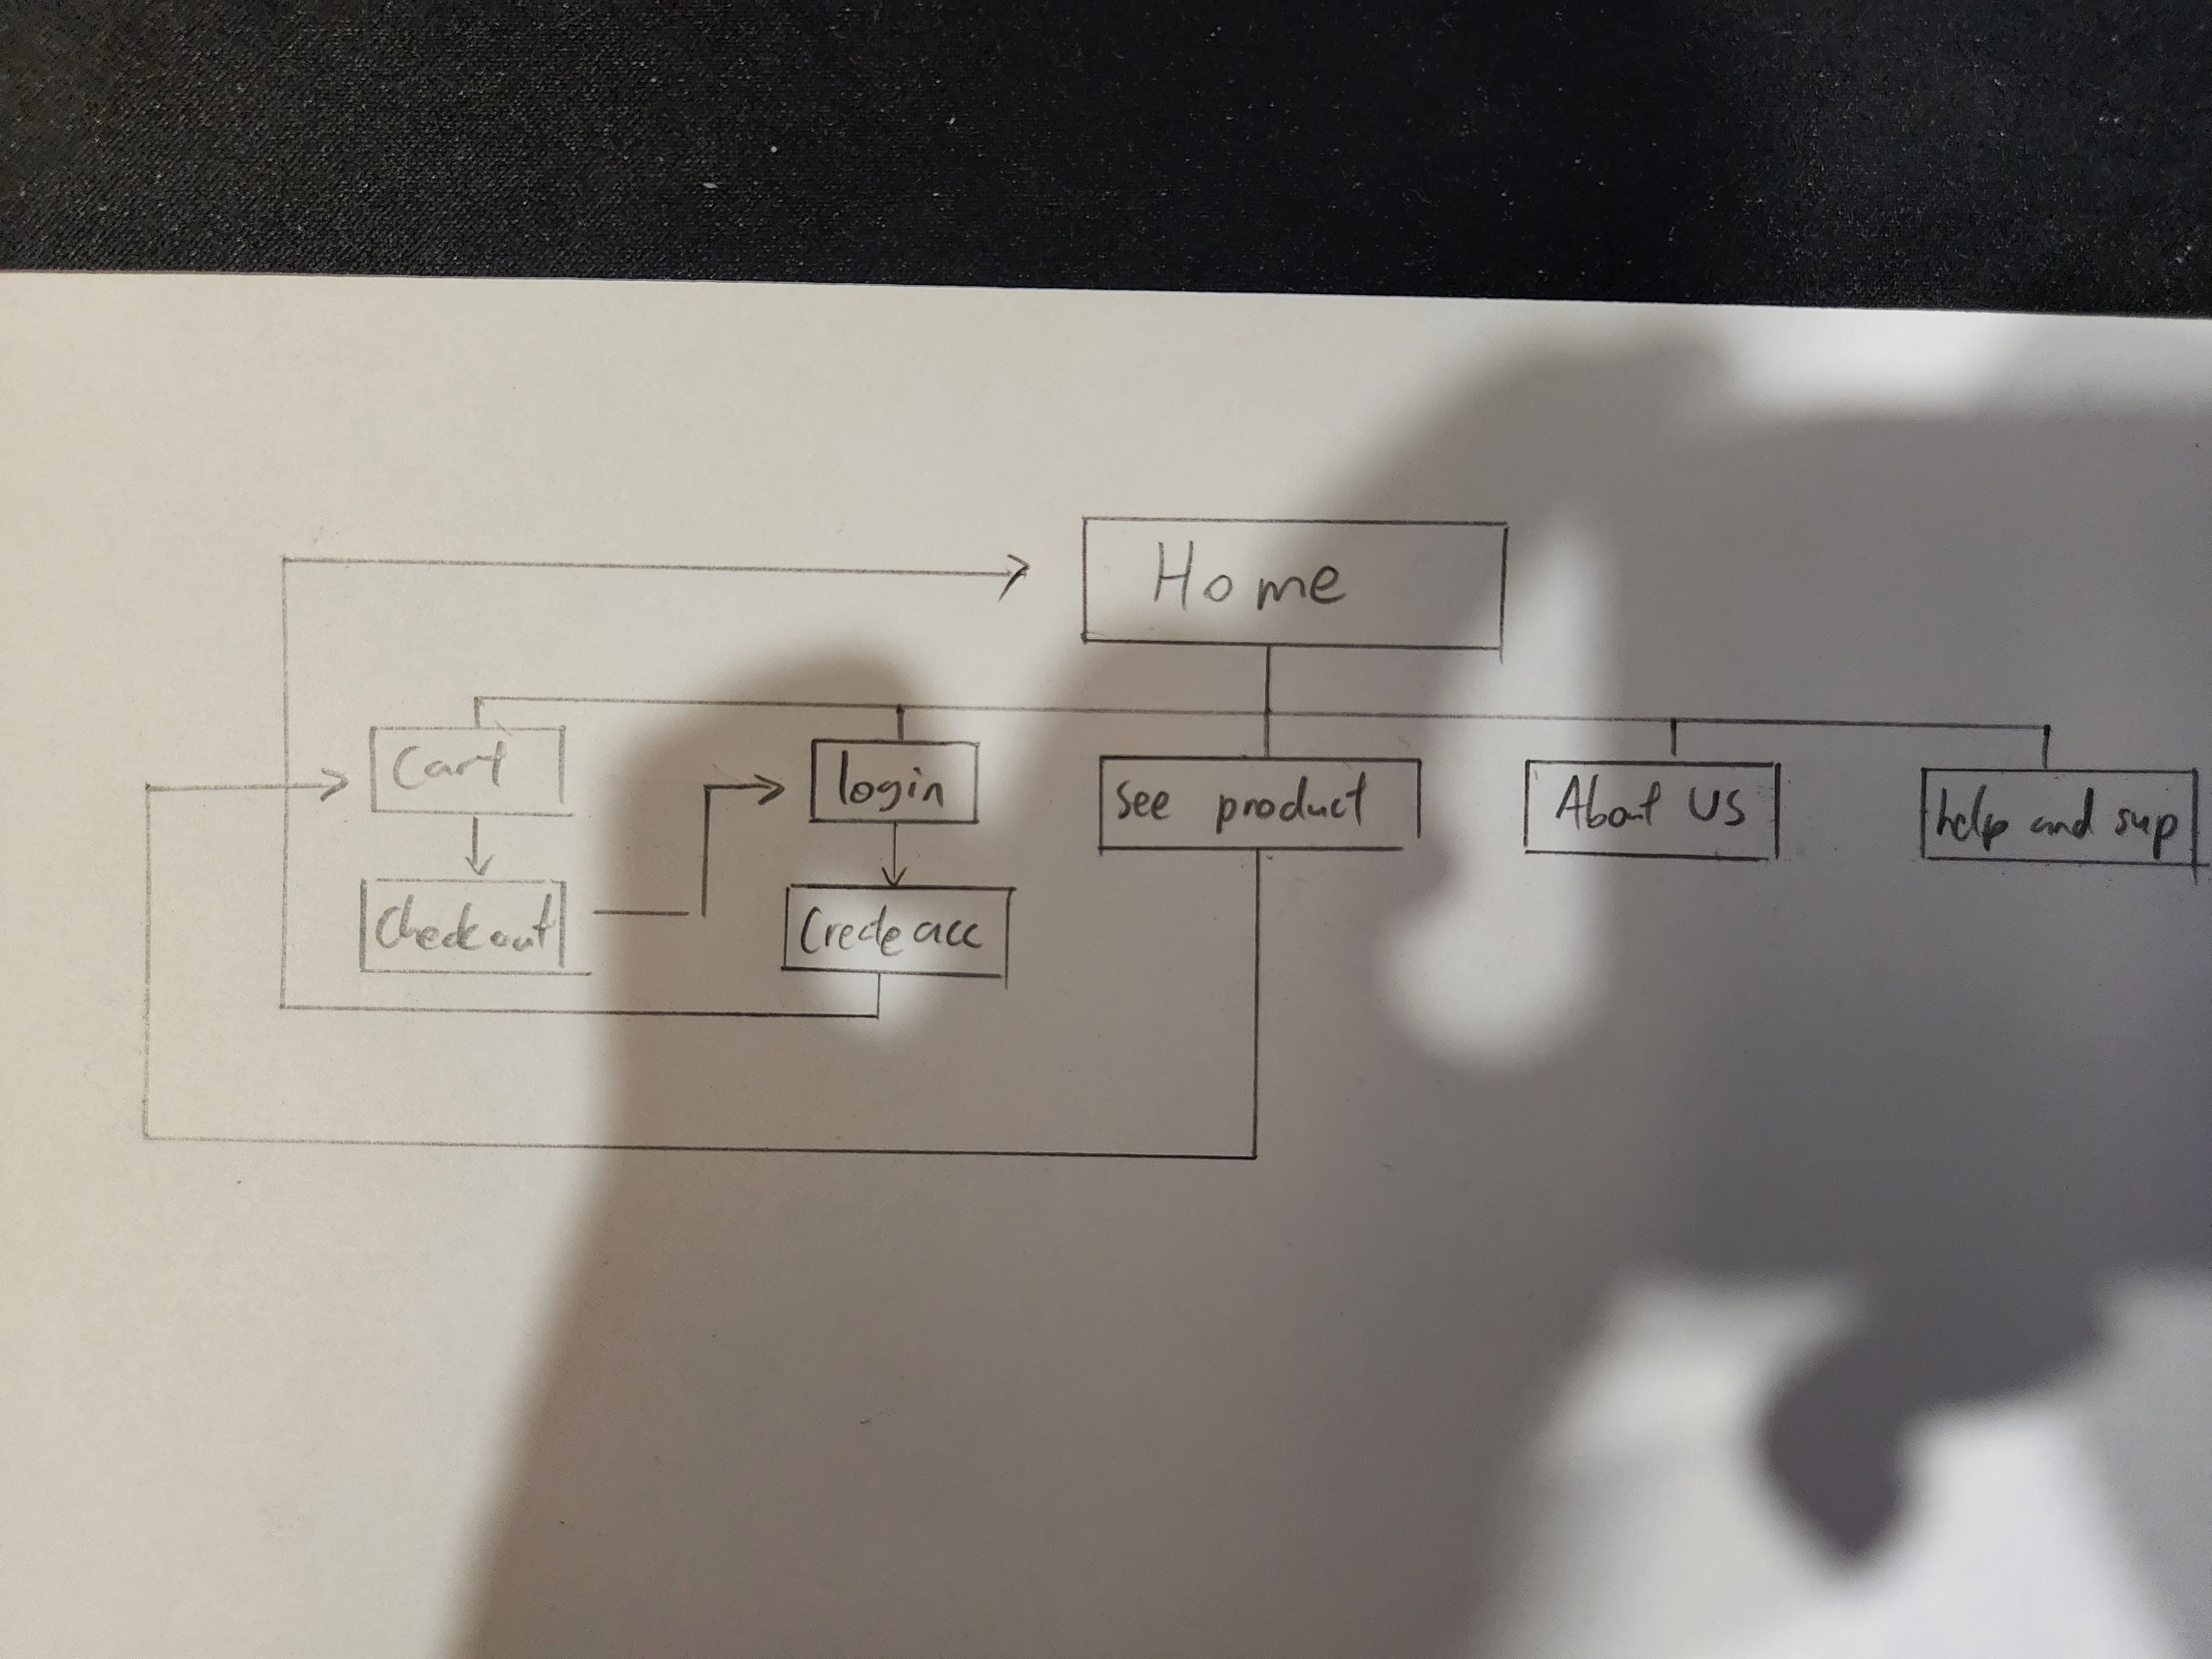 Home
Cart
login
see product
About US
help and sup
Checkout
Create acc